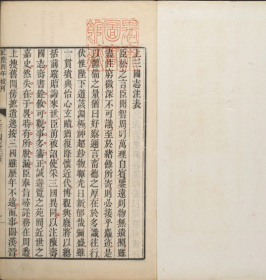 上三國志注表
臣松之言臣聞智周則萬理自賓鑒遠則物無遺照雖
盡性窮微深不可識至於緒餘所寄則必接乎麤迹是
以體備之量猶曰好察邇言畜德之厚在於多識往行
伏惟陛下道該淵極神超妙物暉光日新郁哉彌盛雖
一貫墳典怡心玄賾猶復降懷近代博觀興廢將以總
括前蹤貽誨來世臣前被詔使采三國異同以注陳壽
國志壽書銓敘可觀事多審正誠遊覽之苑囿近世之
嘉史然失在于略時有所脫漏臣奉旨尋詳務在周悉
上搜舊聞傍摭遺逸按三國雖歷年不遠而事關漢晉